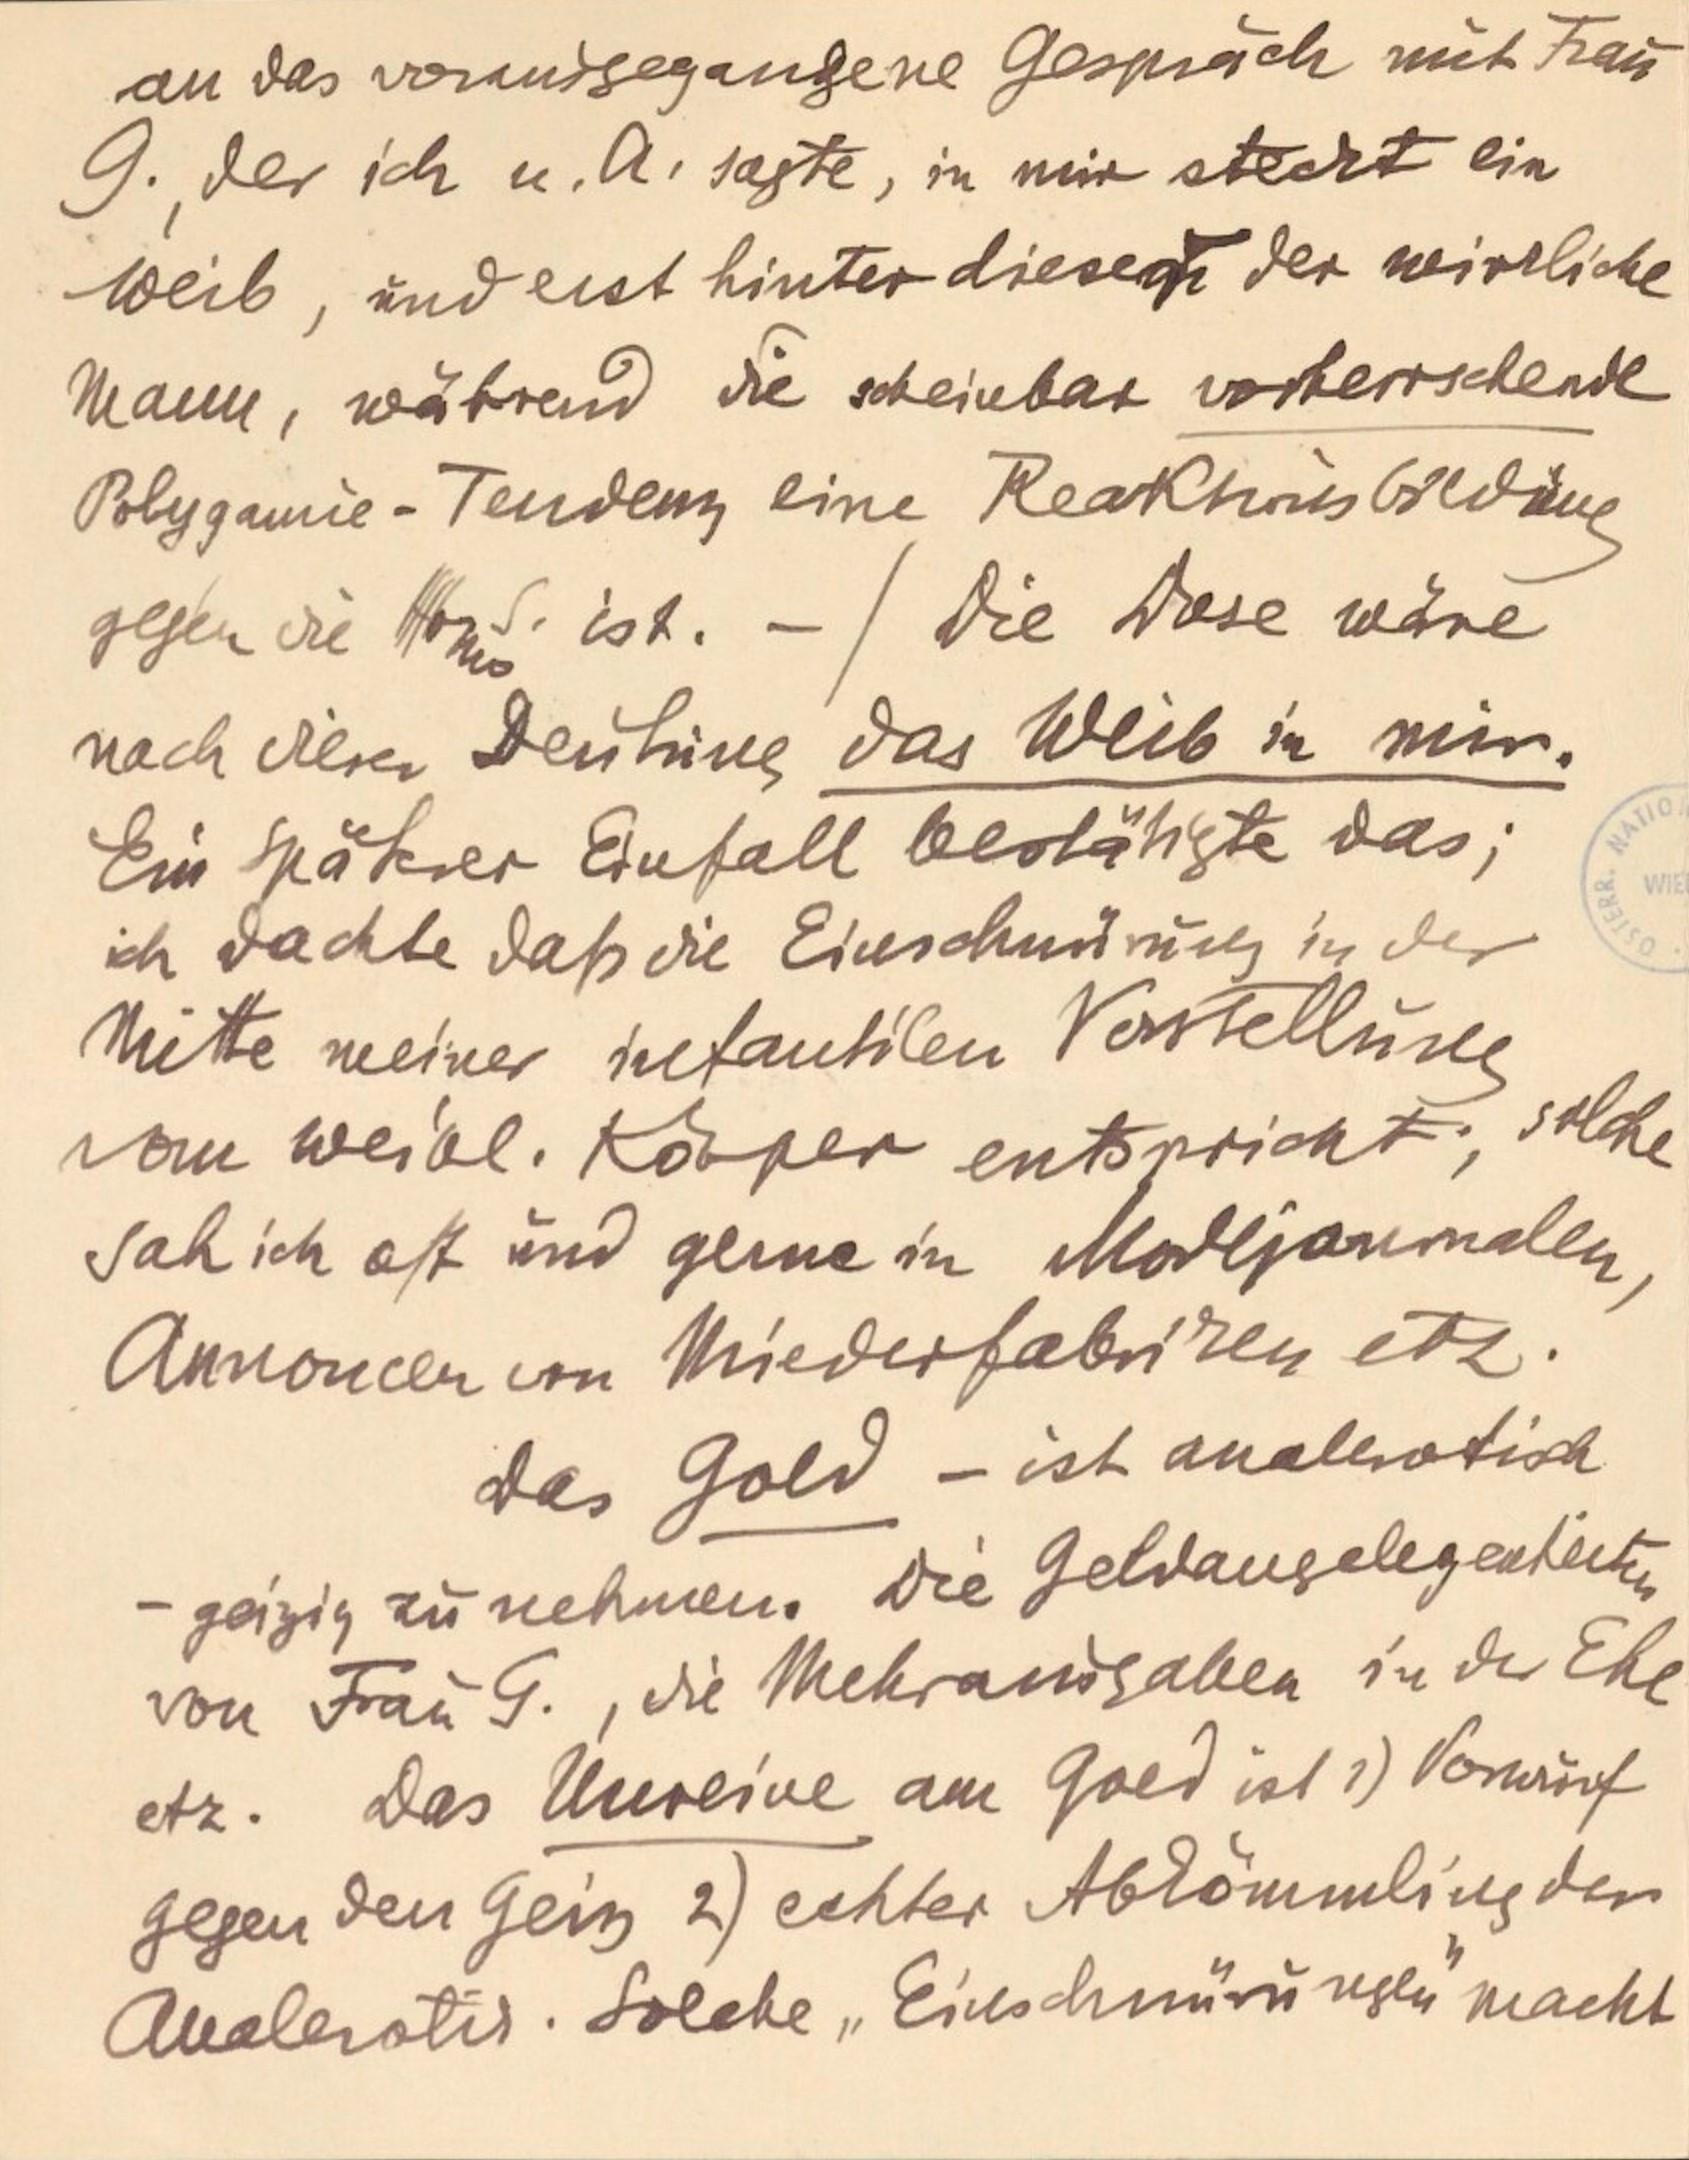 an das vorausgegangene Gespräch mit Frau
G., der ich u. A. sagte, in mir steckt ein
Weib, und erst hinter diesem der wirkliche
Mann, während die scheinbar vorherrschende
Polygamie-Tendenz eine Reaktionsbildung
gegen die Homos. ist. – / Die Dose wäre
nach dieser Deutung das Weib in mir.
Ein späterer Einfall bestätigte das;
ich dachte daß die Einschnürung in der
Mitte meiner infantilen Vorstellung
vom weibl. Körper entspricht; solche
sah ich oft und gerne in Modejournalen,
Annoncen von Miederfabriken etz.
Das Gold – ist analerotisch
– geizig zu nehmen. Die Geldangelegenheiten
von Frau G., die Mehrausgaben in der Ehe
etz. Das Unreine am Gold ist 1) Vorwurf
gegen den Geiz 2) echter Abkömmling der
Analerotik. Solche „Einschnürungen" macht
ÖSTERR. NATIO
WIE